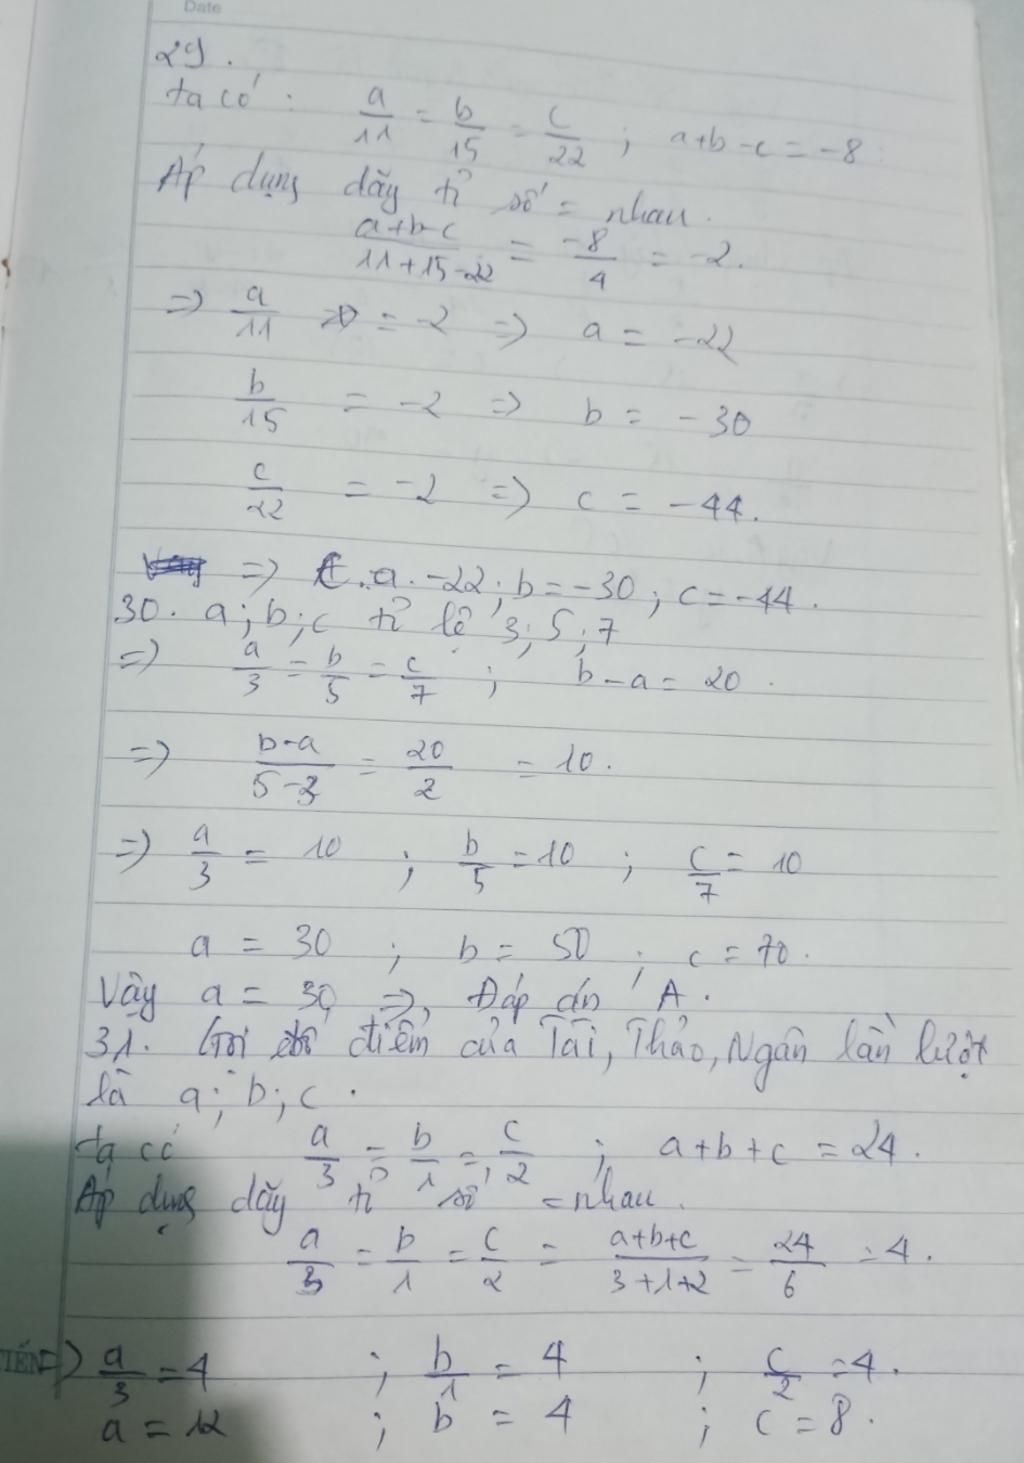 Date
29.
ta có : a/11 = b/15 = c/22 ; a+b-c = -8
Áp dụng dãy tỉ số = nhau.
a+b-c/11+15-22 = -8/4 = -2.
=> a/11 = -2 => a = -22
b/15 = -2 => b = -30
c/22 = -2 => c = -44.
=> a. -22; b = -30; c = -44.
30. a; b; c tỉ lệ 3; 5; 7
=> a/3 = b/5 = c/7 ; b-a = 20.
=> b-a/5-3 = 20/2 = 10.
=> a/3 = 10 ; b/5 = 10 ; c/7 = 10
a = 30 ; b = 50 ; c = 70.
Vậy a = 30 => Đáp án A.
31. Gọi điểm của Tài, Thảo, Ngân lần lượt
là a; b; c.
ta có a/3 = b/1 = c/2 ; a+b+c = 24.
Áp dụng dãy tỉ số = nhau.
a/3 = b/1 = c/2 = a+b+c/3+1+2 = 24/6 = 4.
=> a/3 = 4 ; b/1 = 4 ; c/2 = 4.
a = 12 ; b = 4 ; c = 8.